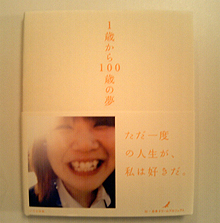 1歳から
100
歳の夢
ただ一度
の人生が、
私は好きだ。